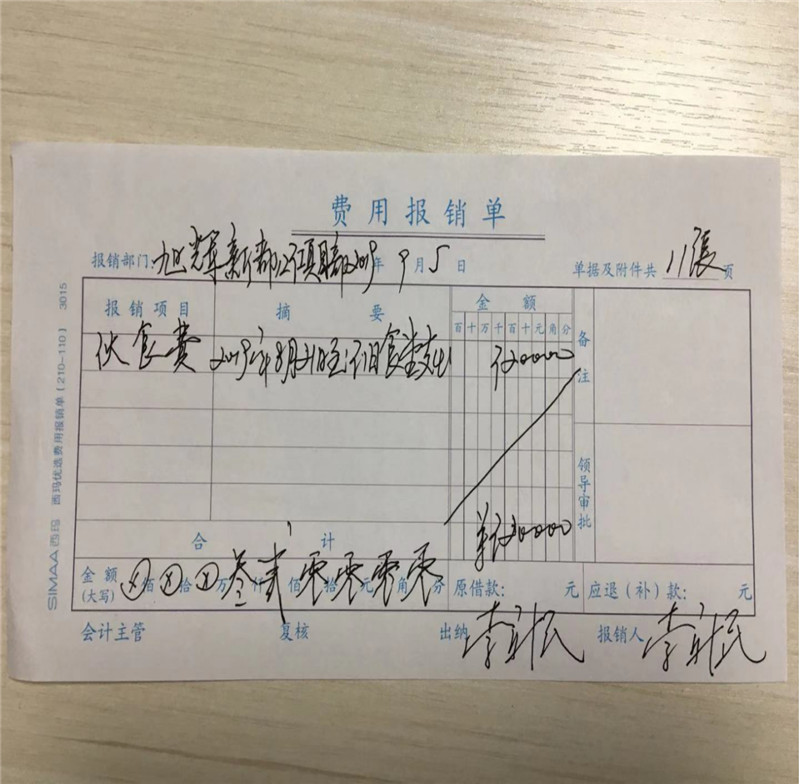 费用报销单
报销部门:旭辉新都 项目部2019年9月5日 单据及附件共11张页
报销项目 摘要 金额 备注
百十万千百十元角分
伙食费 2019年8月21日至 食堂支出 0000
领导审批
合计 0000
金额(大写) ⊗佰⊗拾⊗万叁仟贰佰零拾零元零角零分 原借款: 元 应退(补)款: 元
会计主管 复核 出纳 李 民 报销人 李 民
SIMAA西玛 西玛优选费用报销单(210-110) 3015